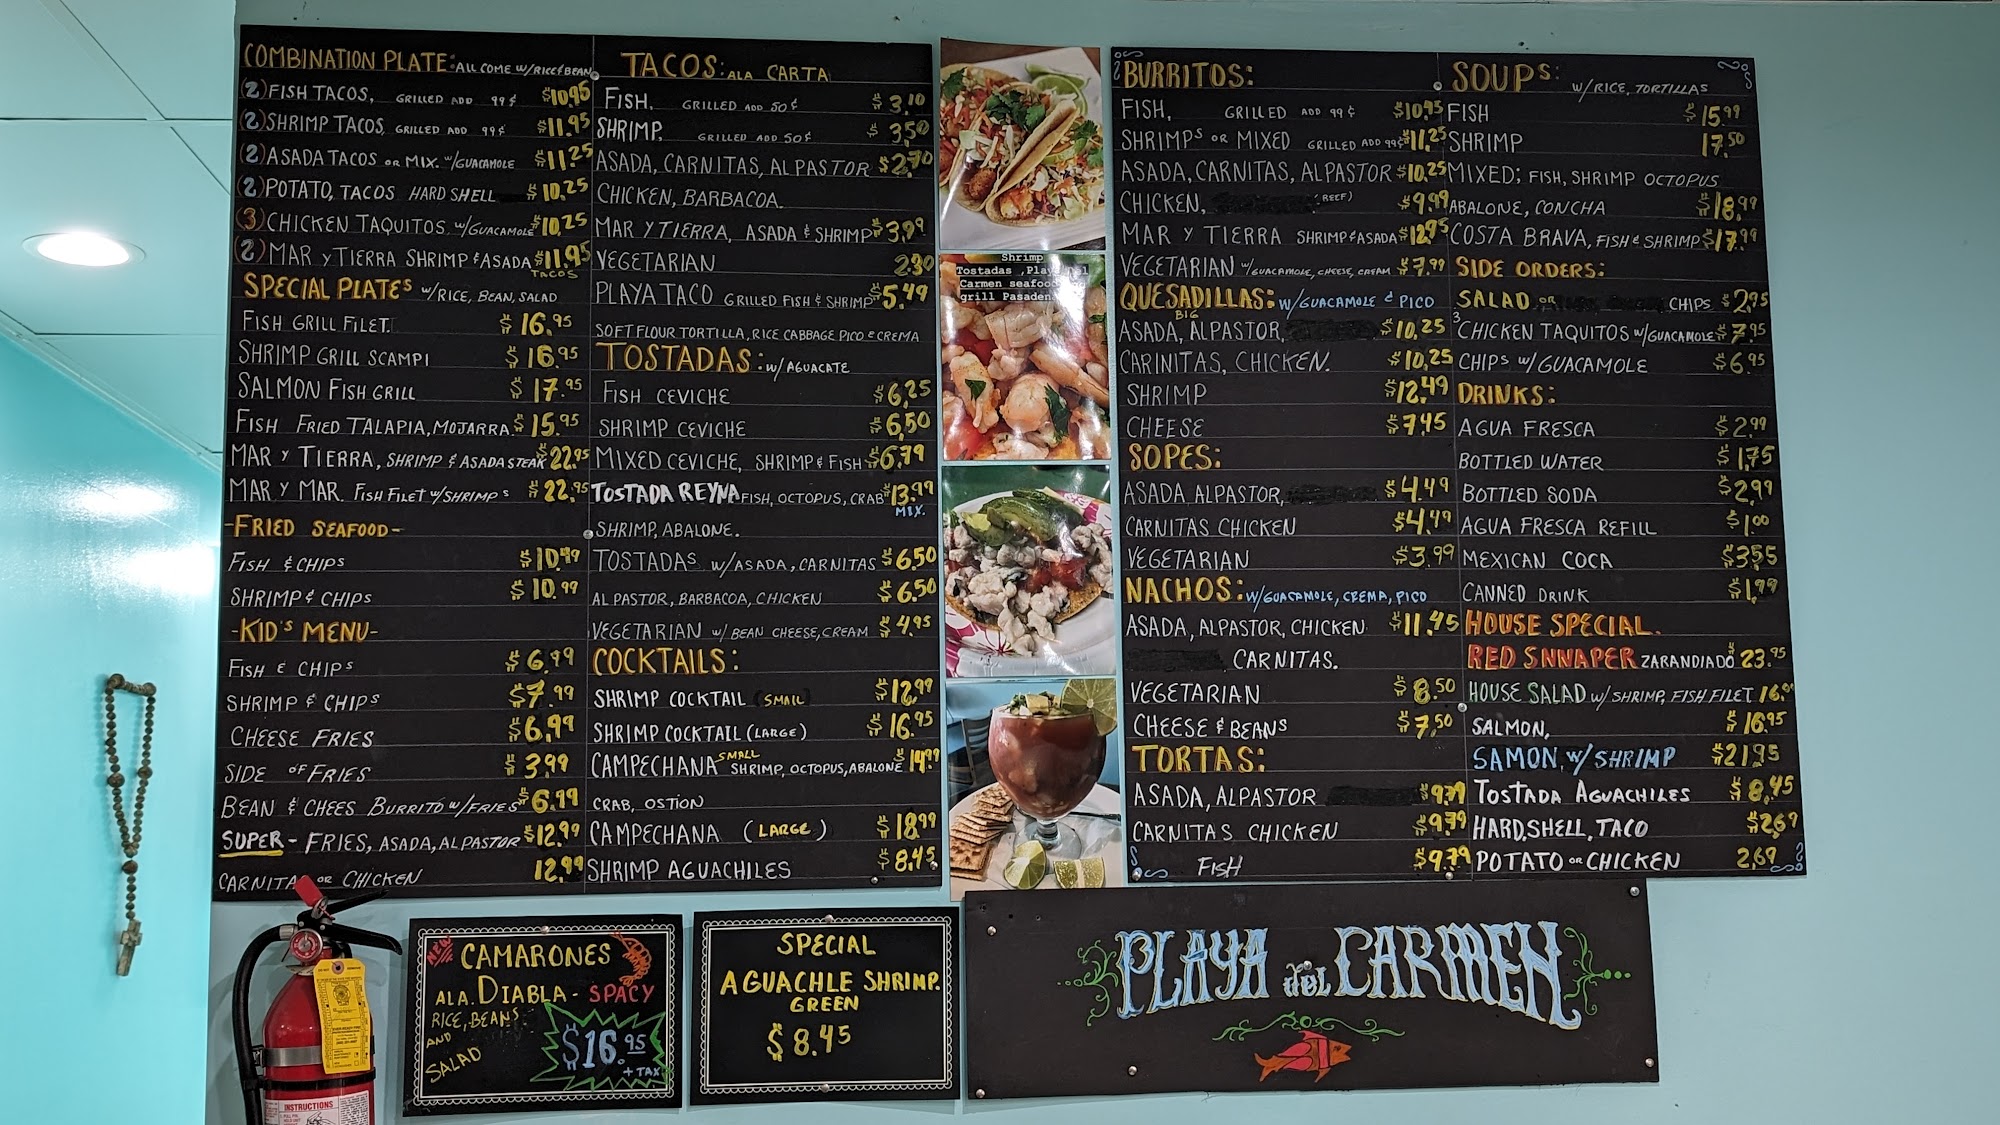 COMBINATION PLATE: ALL COME W/RICE & BEAN
(2) FISH TACOS, GRILLED ADD 99¢ $10.95
(2) SHRIMP TACOS, GRILLED ADD 99¢ $11.95
(2) ASADA TACOS OR MIX. W/GUACAMOLE $11.25
(2) POTATO, TACOS HARD SHELL $10.25
(3) CHICKEN TAQUITOS W/GUACAMOLE $10.25
(2) MAR Y TIERRA SHRIMP & ASADA $11.95
TACOS
SPECIAL PLATES W/RICE, BEAN, SALAD
FISH GRILL FILET. $16.95
SHRIMP GRILL SCAMPI $16.95
SALMON FISH GRILL $17.95
FISH FRIED TALAPIA, MOJARRA $15.95
MAR Y TIERRA, SHRIMP & ASADA STEAK $22.95
MAR Y MAR. FISH FILET W/SHRIMPS $22.95
-FRIED SEAFOOD-
FISH & CHIPS $10.99
SHRIMP & CHIPS $10.99
-KID'S MENU-
FISH & CHIPS $6.99
SHRIMP & CHIPS $7.99
CHEESE FRIES $6.99
SIDE OF FRIES $3.99
BEAN & CHEES BURRITO W/FRIES $6.99
SUPER- FRIES, ASADA, AL PASTOR $12.99
CARNITAS OR CHICKEN 12.99
TACOS: ALA CARTA
FISH, GRILLED ADD 50¢ $3.10
SHRIMP, GRILLED ADD 50¢ $3.50
ASADA, CARNITAS, AL PASTOR $2.70
CHICKEN, BARBACOA.
MAR Y TIERRA, ASADA & SHRIMP $3.99
VEGETARIAN 2.30
PLAYA TACO GRILLED FISH & SHRIMP $5.49
SOFT FLOUR TORTILLA, RICE CABBAGE PICO & CREMA
TOSTADAS: W/AGUACATE
FISH CEVICHE $6.25
SHRIMP CEVICHE $6.50
MIXED CEVICHE, SHRIMP & FISH $6.79
TOSTADA REYNA FISH, OCTOPUS, CRAB $13.99
MIX.
SHRIMP, ABALONE.
TOSTADAS W/ASADA, CARNITAS $6.50
AL PASTOR, BARBACOA, CHICKEN $6.50
VEGETARIAN W/ BEAN CHEESE, CREAM $4.95
COCKTAILS:
SHRIMP COCKTAIL (SMALL) $12.99
SHRIMP COCKTAIL (LARGE) $16.95
CAMPECHANA SMALL SHRIMP, OCTOPUS, ABALONE $14.99
CRAB, OSTION
CAMPECHANA (LARGE) $18.99
SHRIMP AGUACHILES $8.45
Shrimp
Tostadas ,Playa del
Carmen seafood
grill Pasaden
BURRITOS:
FISH, GRILLED ADD 99¢ $10.95
SHRIMPS OR MIXED GRILLED ADD 99¢ $11.25
ASADA, CARNITAS, AL PASTOR $10.25
CHICKEN, (BEEF) $9.99
MAR Y TIERRA SHRIMP & ASADA $12.95
VEGETARIAN W/GUACAMOLE, CHEESE, CREAM $7.99
QUESADILLAS: W/GUACAMOLE & PICO
BIG
ASADA, ALPASTOR, $10.25
CARINITAS, CHICKEN. $10.25
SHRIMP $12.49
CHEESE $7.45
SOPES:
ASADA ALPASTOR, $4.49
CARNITAS CHICKEN $4.49
VEGETARIAN $3.99
NACHOS: W/GUACAMOLE, CREMA, PICO
ASADA, ALPASTOR, CHICKEN $11.45
CARNITAS.
VEGETARIAN $8.50
CHEESE & BEANS $7.50
TORTAS:
ASADA, ALPASTOR $9.79
CARNITAS CHICKEN $9.79
FISH $9.79
SOUPS: W/RICE, TORTILLAS
FISH $15.99
SHRIMP 17.50
MIXED; FISH, SHRIMP OCTOPUS
ABALONE, CONCHA $18.99
COSTA BRAVA, FISH & SHRIMP $17.99
SIDE ORDERS:
SALAD OR CHIPS $2.95
3 CHICKEN TAQUITOS W/GUACAMOLE $7.95
CHIPS W/GUACAMOLE $6.95
DRINKS:
AGUA FRESCA $2.99
BOTTLED WATER $1.75
BOTTLED SODA $2.99
AGUA FRESCA REFILL $1.00
MEXICAN COCA $3.55
CANNED DRINK $1.99
HOUSE SPECIAL.
RED SNNAPER ZARANDIADO $23.95
HOUSE SALAD W/SHRIMP, FISH FILET 16.
SALMON, $16.95
SAMON W/ SHRIMP $21.95
TOSTADA AGUACHILES $8.45
HARD, SHELL, TACO $2.69
POTATO OR CHICKEN 2.69
NEW CAMARONES
ALA. DIABLA - SPACY
RICE, BEANS
AND
SALAD
$16.95
+ TAX
SPECIAL
AGUACHLE SHRIMP.
GREEN
$8.45
PLAYA del CARMEN
INSTRUCTIONS